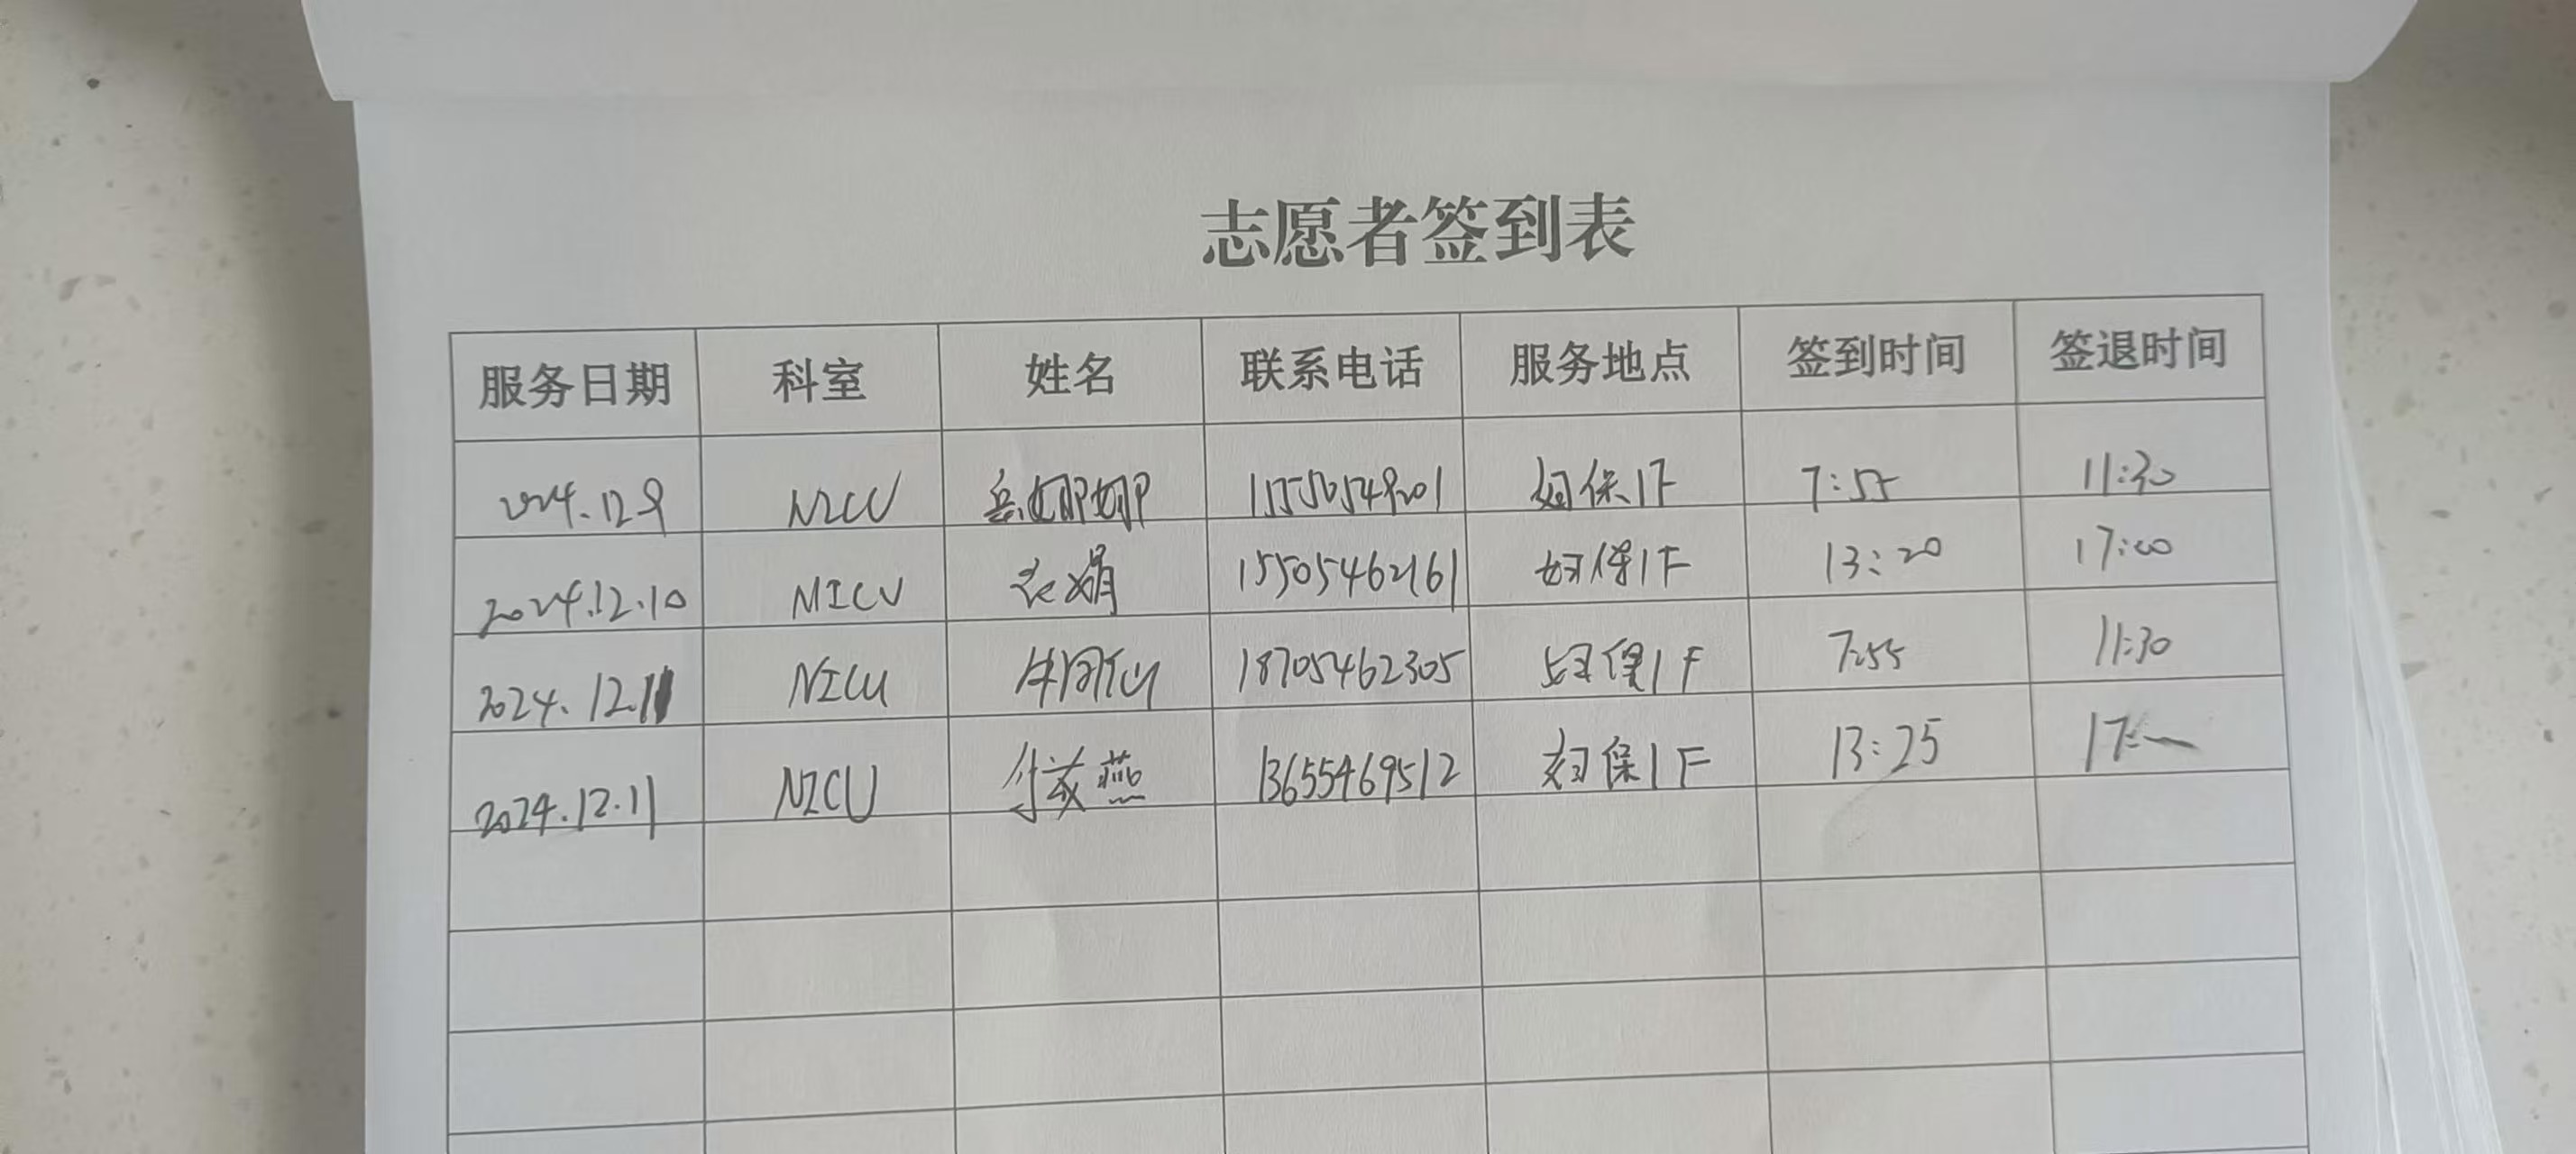 志愿者签到表
服务日期 科室 姓名 联系电话 服务地点 签到时间 签退时间
2024.12.9 NICU 岳娜娜 妇保1F 7:55 11:30
2024.12.10 NICU 娟 15505462161 妇保1F 13:20 17:00
2024.12.11 NICU 18705462305 妇保1F 7:55 11:30
2024.12.11 NICU 燕 13655469512 妇保1F 13:25 17: